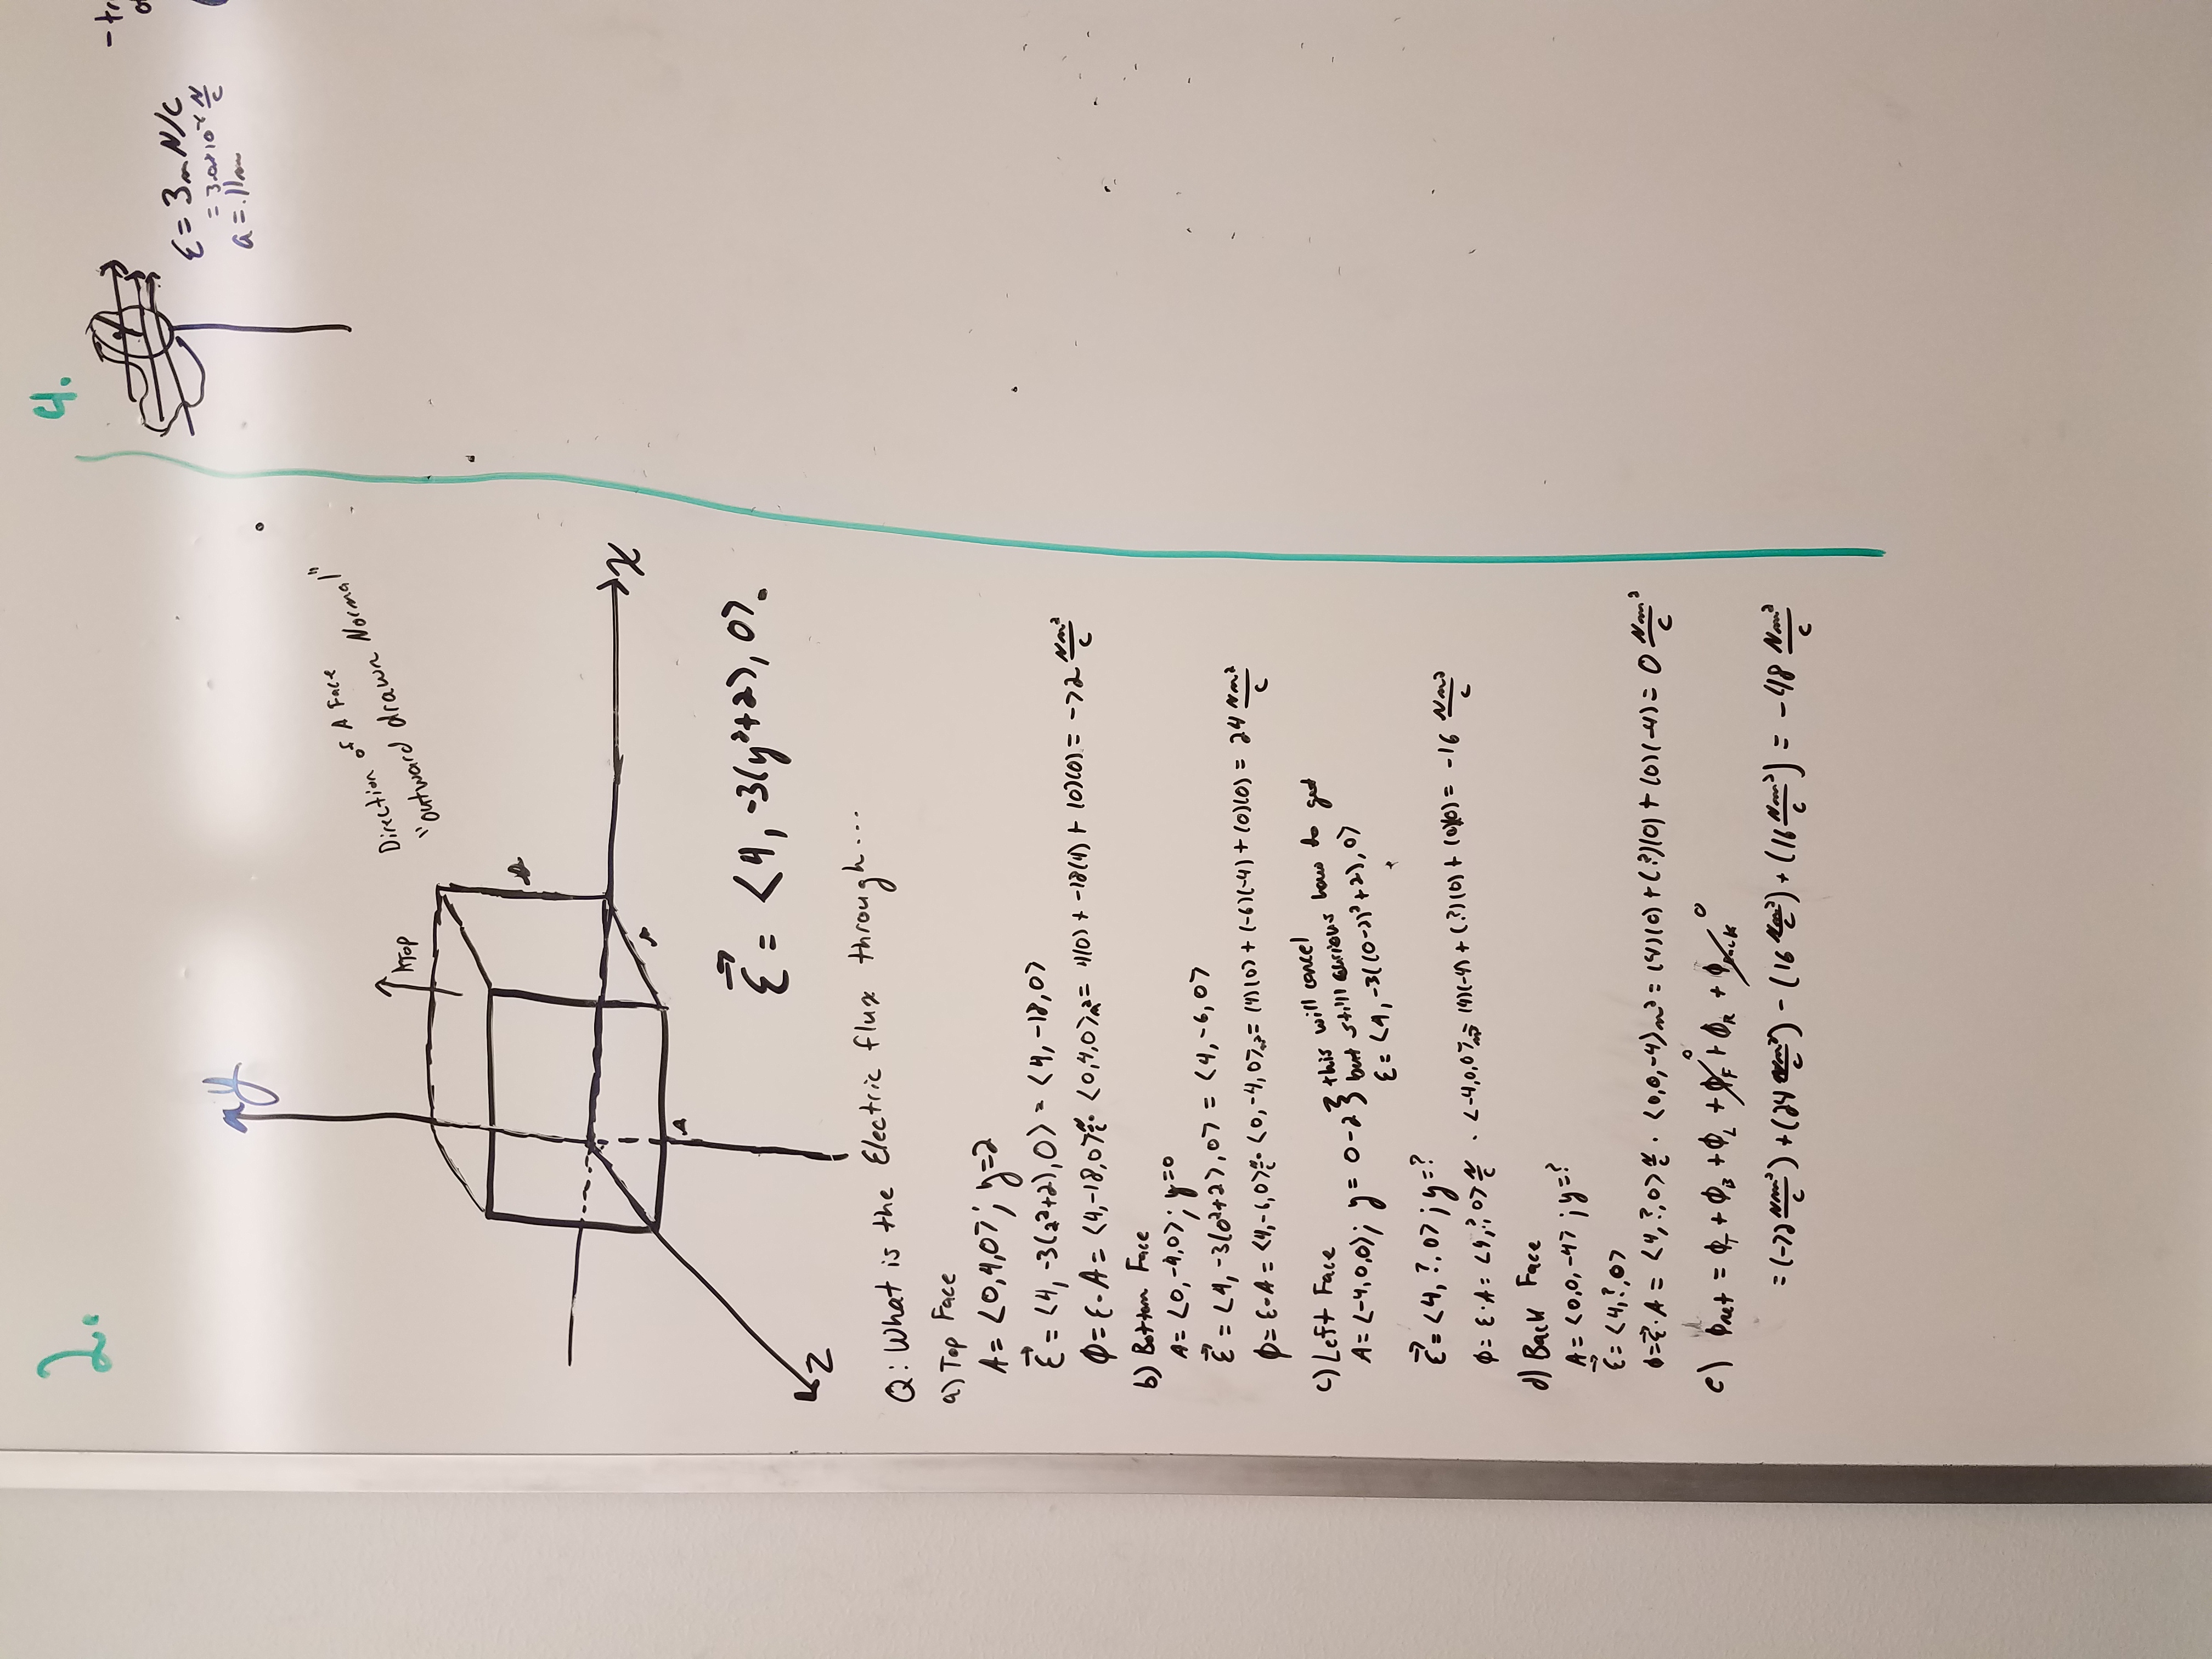 2.
y
A Top
Direction of A Face
"outward drawn Normal"
x
z
Ɛ⃗ = <4, -3(y²+2), 0>.
Q: What is the Electric flux through...
a) Top Face
A = <0,4,0>; y=2
Ɛ⃗ = <4, -3(2²+2), 0> = <4, -18, 0>
Φ = Ɛ·A = <4,-18,0> N/C · <0,4,0> m² = 4(0) + -18(4) + (0)(0) = -72 Nm²/C
b) Bottom Face
A = <0,-4,0>; y=0
Ɛ⃗ = <4, -3(0²+2), 0> = <4, -6, 0>
Φ = Ɛ·A = <4,-6,0> N/C · <0,-4,0> m² = (4)(0) + (-6)(-4) + (0)(0) = 24 Nm²/C
c) Left Face
A = <-4,0,0>; y = 0-2 } this will cancel
but still curious how to get
Ɛ = <4, -3((0-2)²+2), 0>
Ɛ⃗ = <4, ?, 0>; y=?
Φ = Ɛ·A = <4,?,0> N/C · <-4,0,0> m² = (4)(-4) + (?)(0) + (0)(0) = -16 Nm²/C
d) Back Face
A = <0,0,-4>; y=?
Ɛ⃗ = <4,?,0>
Φ = Ɛ⃗·A = <4,?,0> N/C · <0,0,-4> m² = (4)(0) + (?)(0) + (0)(-4) = 0 Nm²/C
e) Φnet = ΦT + ΦB + ΦL + ΦF 0 + ΦR + Φback 0
= (-72 Nm²/C) + (24 Nm²/C) - (16 Nm²/C) + (16 Nm²/C) = -48 Nm²/C
4.
Ɛ = 3m N/C
a = .11m